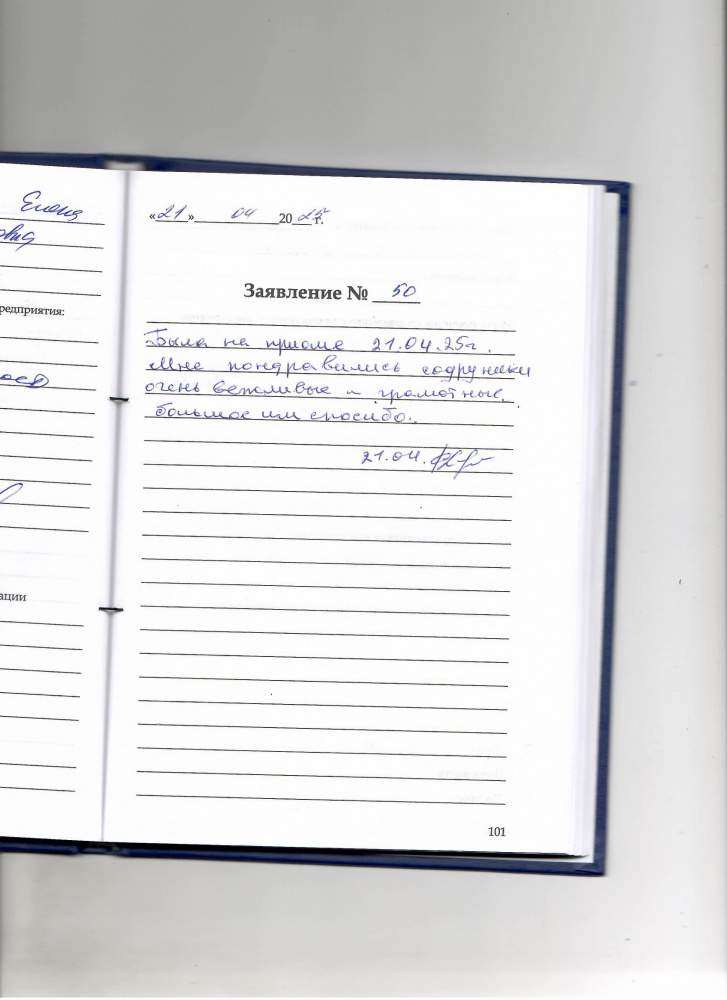 Елена
редприятия:
ации
«21» 04 2025 г.
Заявление № 50
Была на приоме 21.04.25г.
Мне пондравились содруники
очень вежливые и грамотные.
Большое им спосибо.
21.04.
101